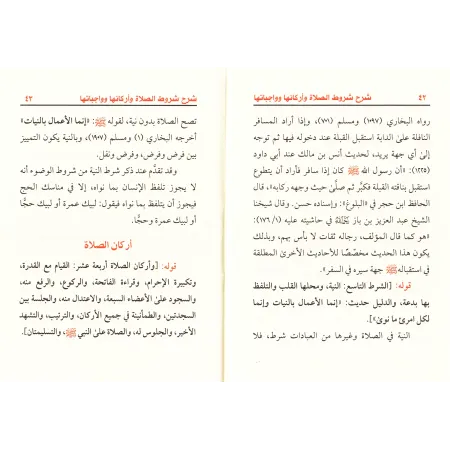 ٤٢ شرح شروط الصلاة وأركانها وواجباتها
رواه البخاري (١٠٩٧) ومسلم (٧٠١)، وإذا أراد المسافر
النافلة على الدابة استقبل القبلة عند دخوله فيها ثم توجه
إلى أي جهة يريد، لحديث أنس بن مالك عند أبي داود
(١٢٢٥): «أن رسول الله ﷺ كان إذا سافر فأراد أن يتطوع
استقبل بناقته القبلة فكبَّر ثم صلَّى حيث وجهه ركابه»، قال
الحافظ ابن حجر في «البلوغ»: وإسناده حسن. وقال شيخنا
الشيخ عبد العزيز بن باز رحمه الله في حاشيته عليه (١/ ١٧٦):
«هو كما قال المؤلف، رجاله ثقات لا بأس بهم، وبذلك
يكون هذا الحديث مخصِّصًا للأحاديث الأخرى المطلقة
في استقباله ﷺ جهة سيره في السفر».
قوله: [الشرط التاسع: النية، ومحلها القلب والتلفظ
بها بدعة، والدليل حديث: «إنما الأعمال بالنيات وإنما
لكل امرئ ما نوى»].
النية في الصلاة وغيرها من العبادات شرط، فلا
شرح شروط الصلاة وأركانها وواجباتها ٤٣
تصح الصلاة بدون نية، لقوله ﷺ: «إنما الأعمال بالنيات»
أخرجه البخاري (١) ومسلم (١٩٠٧)، وبالنية يكون التمييز
بين فرض وفرض، وفرض ونفل.
وقد تقدَّم عند ذكر شرط النية من شروط الوضوء أنه
لا يجوز تلفظ الإنسان بما نواه، إلا في مناسك الحج
فيجوز أن يتلفظ بما نواه فيقول: لبيك عمرة أو لبيك حجًّا
أو لبيك عمرة وحجًّا.
أركان الصلاة
قوله: [وأركان الصلاة أربعة عشر: القيام مع القدرة،
وتكبيرة الإحرام، وقراءة الفاتحة، والركوع، والرفع منه،
والسجود على الأعضاء السبعة، والاعتدال منه، والجلسة بين
السجدتين، والطمأنينة في جميع الأركان، والترتيب، والتشهد
الأخير، والجلوس له، والصلاة على النبي ﷺ، والتسليمتان].